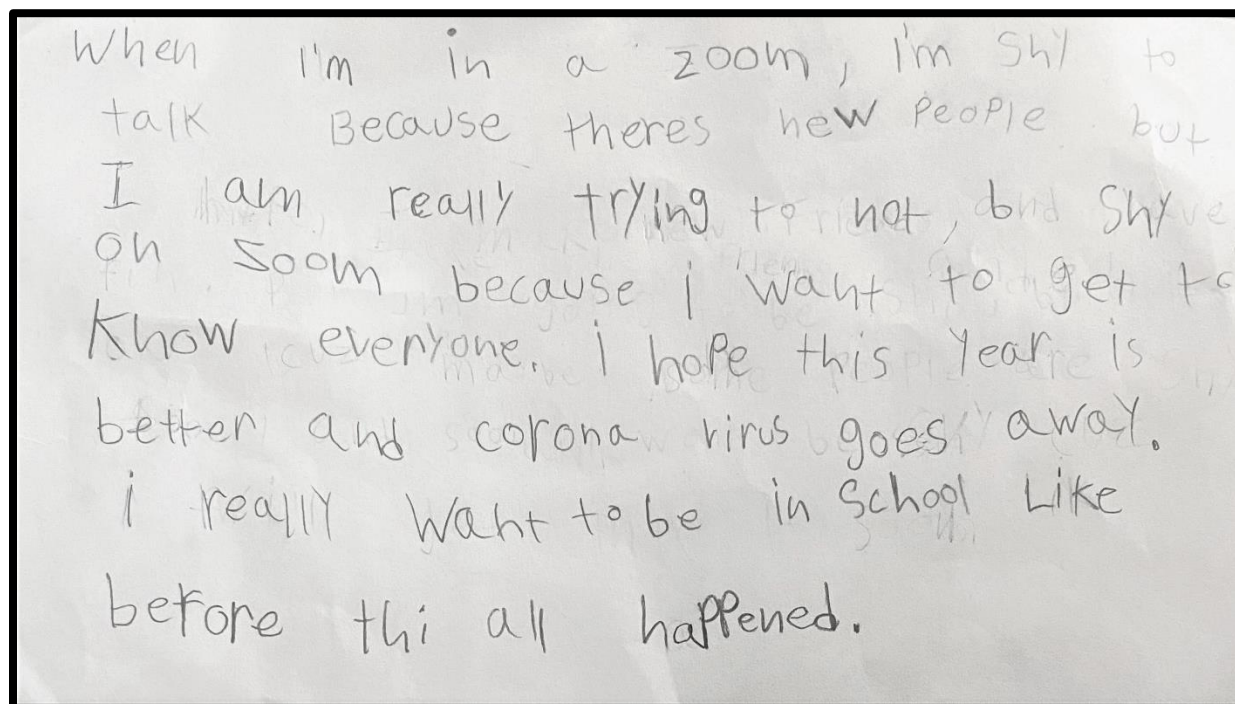 When I'm in a zoom, I'm Shy to
talk Because theres new People but
I am really trying to not, and Shy
on Soom because i want to get to
Know everyone. i hope this year is
better and corona virus goes away.
i really want to be in School Like
before thi all happened.